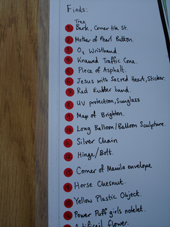 Finds:
Tree
Bark, Corner Ha. St.
Mother of Pearl Button.
O2 Wristband
Knawed Traffic Cone.
Piece of Asphalt.
Jesus with Sacred Heart, Sticker
Red Rubber band
UV protection, Sunglass
Map of Brighton
Long Balloon/Balloon Sculpture.
Silver Chain
Hinge/Bolt.
Corner of Manila envelope
Horse Chesnut.
Yellow Plastic Object.
Power Puff girls notelet.
Artificial flower.